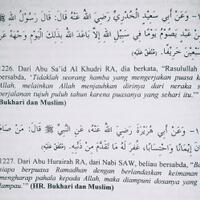 ١- وَعَنْ أَبِي سَعِيدٍ الْخُدْرِيِّ رَضِيَ اللَّهُ عَنْهُ قَالَ: قَالَ رَسُولُ
عَبْدٍ يَصُومُ يَوْمًا فِي سَبِيلِ اللَّهِ إِلَّا بَاعَدَ اللَّهُ بِذَلِكَ الْيَوْمِ وَجْهَهُ عَنِ
سَبْعِينَ خَرِيفًا. مُتَّفَقٌ عَلَيْهِ
1226. Dari Abu Sa'id Al Khudri RA, dia berkata, "Rasulullah
bersabda, "Tidaklah seorang hamba yang mengerjakan puasa k
Allah, melainkan Allah menjauhkan dirinya dari neraka s
perjalanan tujuh puluh tahun karena puasanya yang sehari itu."
Bukhari dan Muslim)
١- وَعَنْ أَبِي هُرَيْرَةَ رَضِيَ اللَّهُ عَنْهُ، عَنِ النَّبِيِّ ﷺ قَالَ: مَنْ صَامَ
إِيمَانًا وَاحْتِسَابًا، غُفِرَ لَهُ مَا تَقَدَّمَ مِنْ ذَنْبِهِ. مُتَّفَقٌ عَلَيْهِ
1227. Dari Abu Hurairah RA, dari Nabi SAW, beliau bersabda, "Ba
siapa berpuasa Ramadhan dengan berlandaskan keimanan
mengharap pahala kepada Allah, maka diampuni dosanya yang
lampau." (HR. Bukhari dan Muslim)